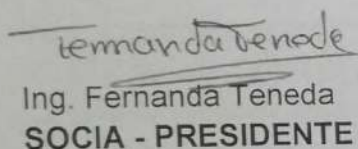 Fernanda Teneda
Ing. Fernanda Teneda
SOCIA - PRESIDENTE